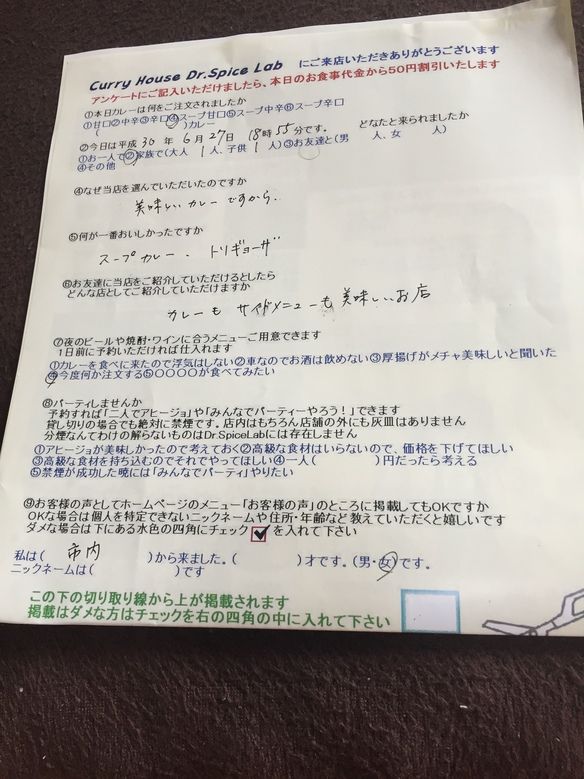 Curry House Dr.Spice Lab にご来店いただきありがとうございます
アンケートにご記入いただけましたら、本日のお食事代金から50円割引いたします
①本日カレーは何をご注文されましたか
①甘口②中辛③辛口④スープ甘口⑤スープ中辛⑥スープ辛口
( )カレー
②今日は平成 30 年 6 月 27 日 18 時 55 分です。 どなたと来られましたか
①お一人で②家族で(大人 1 人、子供 1 人)③お友達と(男 人、女 人)
④その他
④なぜ当店を選んでいただいたのですか
美味しいカレーですから。
⑤何が一番おいしかったですか
スープカレー、トリギョーザ
⑥お友達に当店をご紹介していただけるとしたら
どんな店としてご紹介していただけますか
カレーも サイドメニューも 美味しいお店
⑦夜のビールや焼酎・ワインに合うメニューご用意できます
1日前に予約いただければ仕入れます
①カレーを食べに来たので浮気はしない②車なのでお酒は飲めない③厚揚げがメチャ美味しいと聞いた
④今度何か注文する⑤〇〇〇〇が食べてみたい
⑧パーティしませんか
予約すれば「二人でアヒージョ」や「みんなでパーティーやろう!」できます
貸し切りの場合でも絶対に禁煙です。店内はもちろん店舗の外にも灰皿はありません
分煙なんてわけの解らないものはDr.SpiceLabには存在しません
①アヒージョが美味しかったので考えておく②高級な食材はいらないので、価格を下げてほしい
③高級な食材を持ち込むのでそれでやってほしい④一人( )円だったら考える
⑤禁煙が成功した暁には「みんなでパーティ」やりたい
⑨お客様の声としてホームページのメニュー「お客様の声」のところに掲載してもOKですか
OKな場合は個人を特定できないニックネームや住所・年齢など教えていただくと嬉しいです
ダメな場合は下にある水色の四角にチェック✓を入れて下さい
私は( 市内 )から来ました。( )才です。(男・女)です。
ニックネームは( )です
この下の切り取り線から上が掲載されます
掲載はダメな方はチェックを右の四角の中に入れて下さい